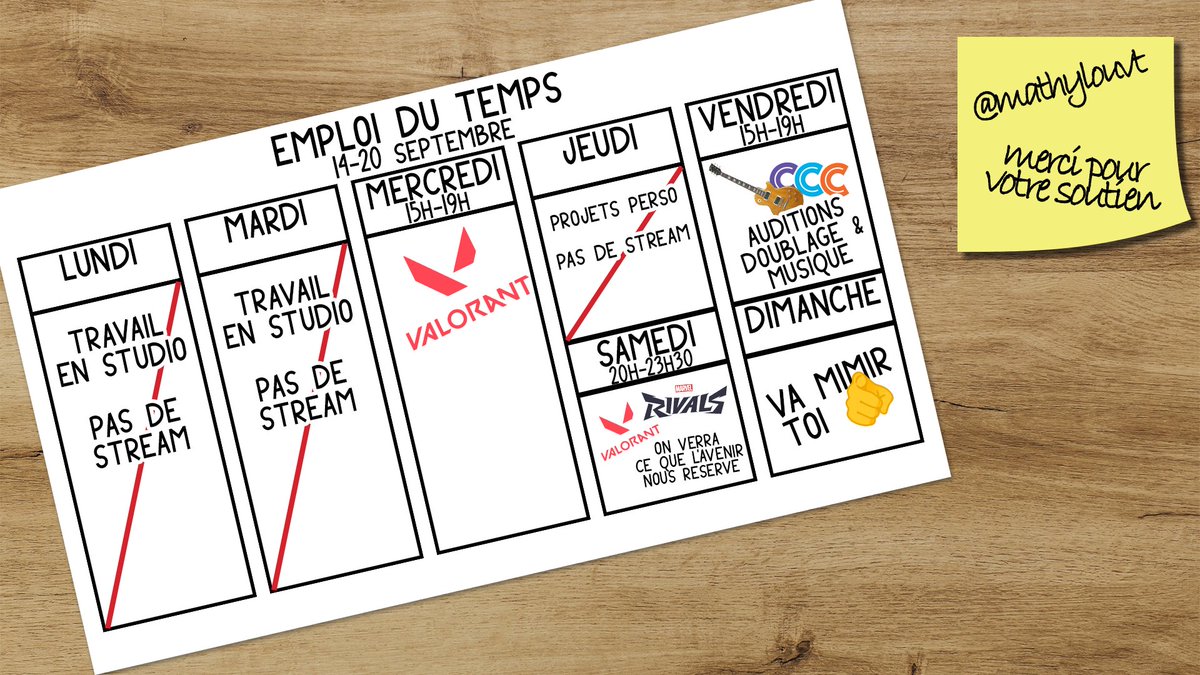 EMPLOI DU TEMPS
14-20 SEPTEMBRE
LUNDI
TRAVAIL
EN STUDIO
PAS DE
STREAM
MARDI
TRAVAIL
EN STUDIO
PAS DE
STREAM
MERCREDI
15H-19H
VALORANT
JEUDI
PROJETS PERSO
PAS DE STREAM
VENDREDI
15H-19H
CCC
AUDITIONS
DOUBLAGE &
MUSIQUE
SAMEDI
20H-23H30
MARVEL
RIVALS
VALORANT
ON VERRA
CE QUE L'AVENIR
NOUS RESERVE
DIMANCHE
VA MIMIR
TOI
merci pour
votre soutien